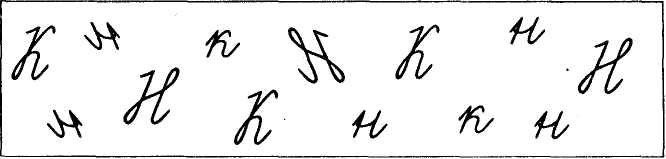 К н к Н К н Н
н Н К н к н